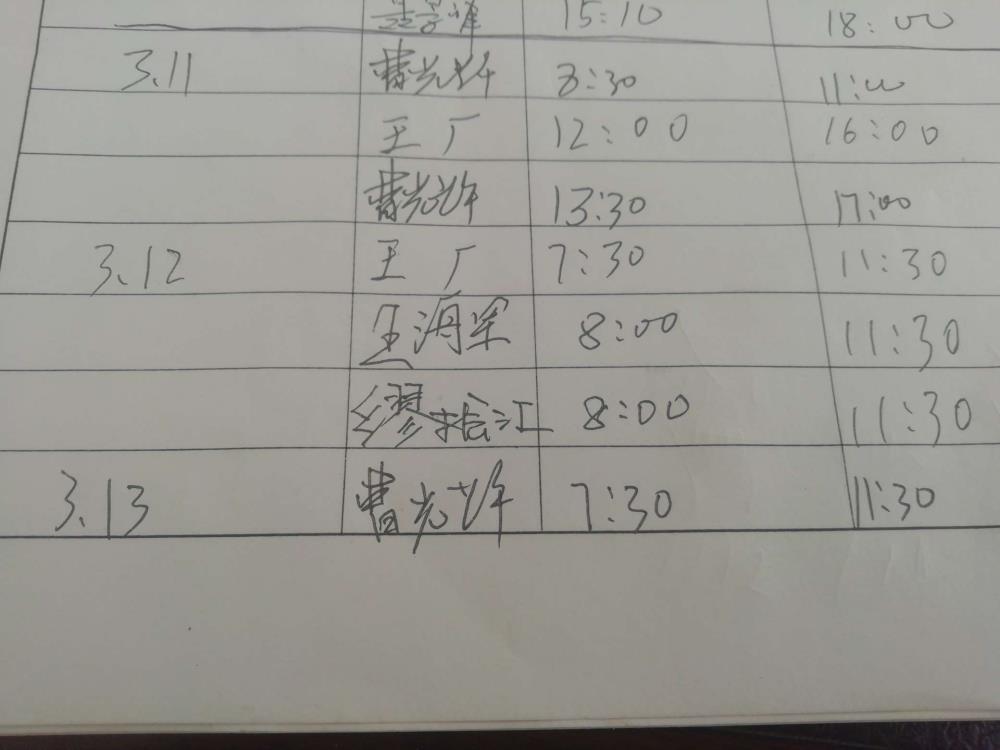 15:10 18:00
3.11 曹光 8:30 11:00
王厂 12:00 16:00
曹光 13:30 17:00
3.12 王厂 7:30 11:30
王海军 8:00 11:30
缪松江 8:00 11:30
3.13 曹光 7:30 11:30